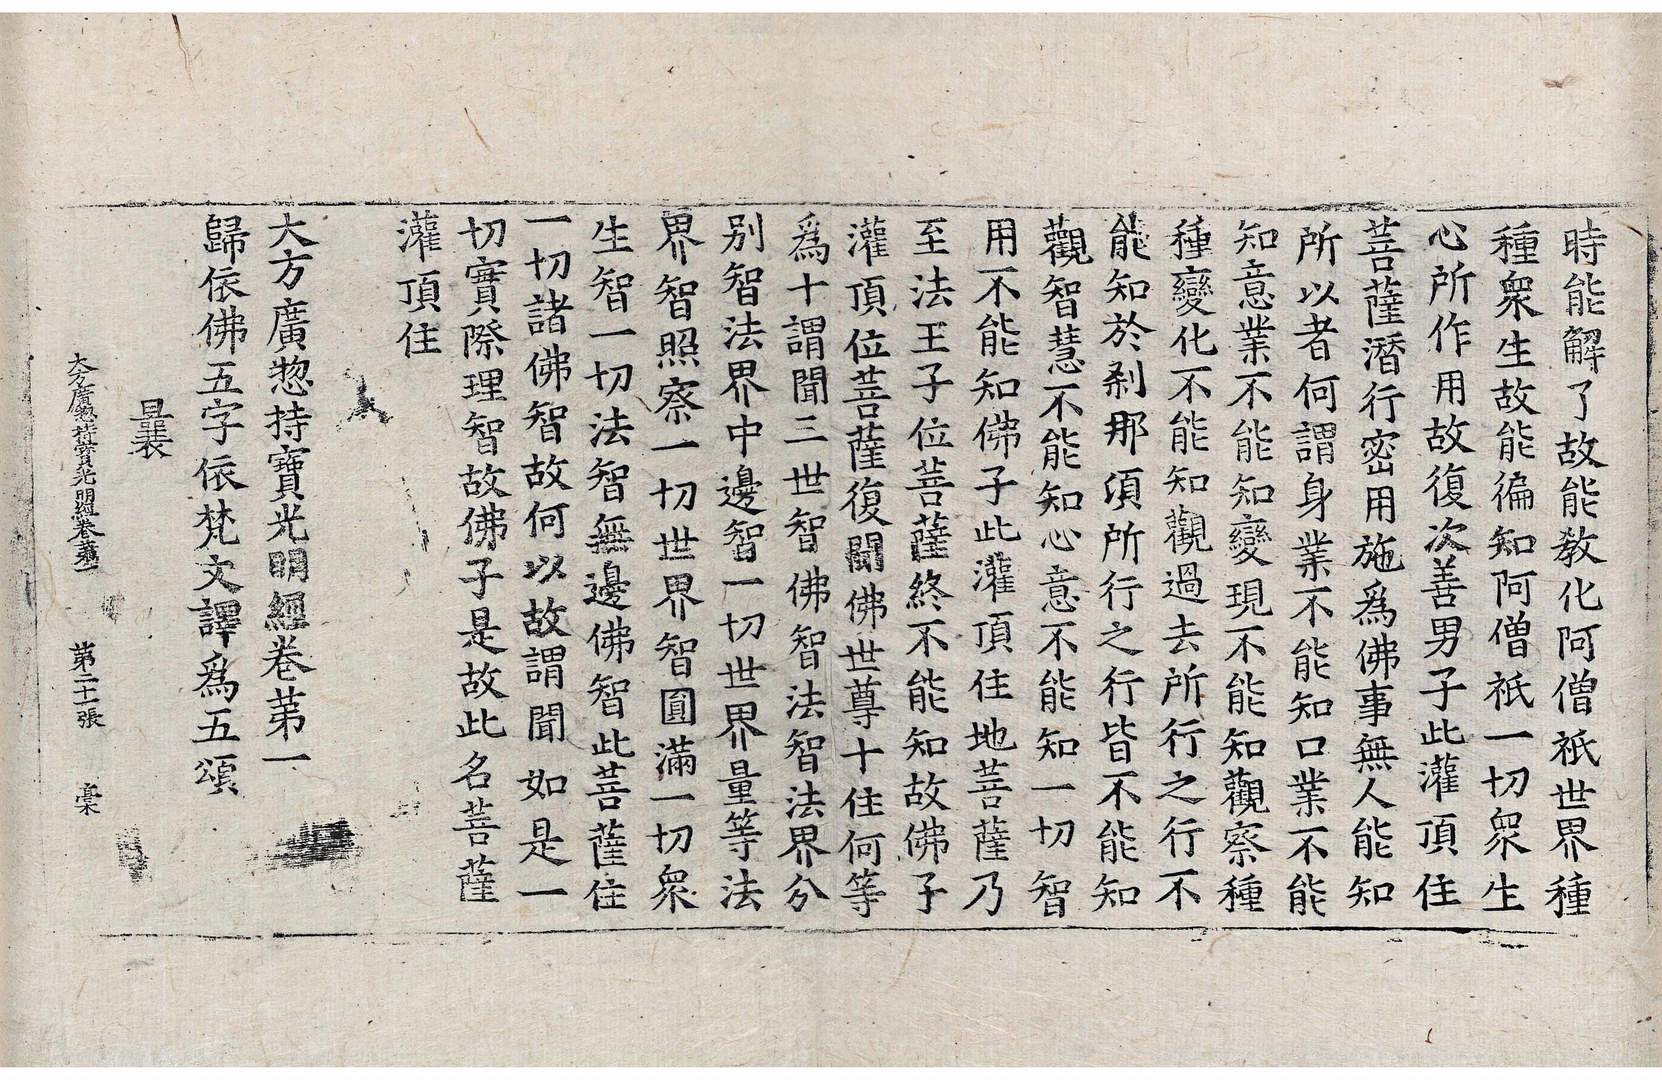 時能解了故能教化阿僧祇世界種
種衆生故能徧知阿僧祇一切衆生
心所作用故復次善男子此灌頂住
菩薩潛行密用施爲佛事無人能知
所以者何謂身業不能知口業不能
知意業不能知變現不能知觀察種
種變化不能知觀過去所行之行不
能知於剎那須所行之行皆不能知
觀智慧不能知心意不能知一切智
用不能知佛子此灌頂住地菩薩乃
至法王子位菩薩終不能知故佛子
灌頂位菩薩復聞佛世尊十住何等
爲十謂聞三世智佛智法智法界分
别智法界中邊智一切世界量等法
界智照察一切世界智圓滿一切衆
生智一切法智無邊佛智此菩薩住
一切諸佛智故何以故謂聞如是一
切實際理智故佛子是故此名菩薩
灌頂住
大方廣惣持寶光明經卷苐一
歸依佛五字依梵文譯爲五頌
大方廣惣持寶光明經卷苐一 第二十一張